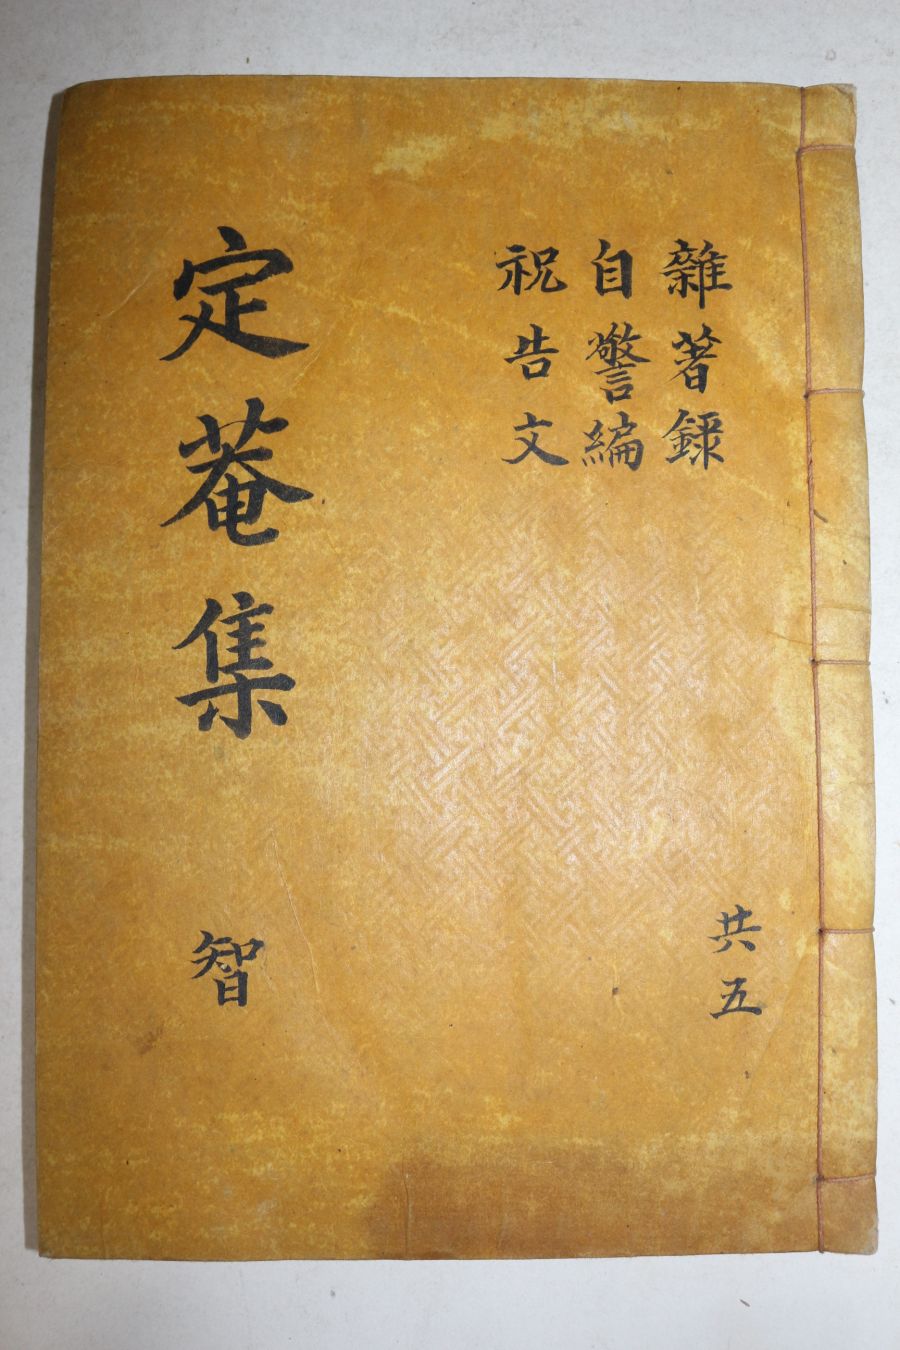 雜著錄
自警編
祝告文
共五
定菴集
智